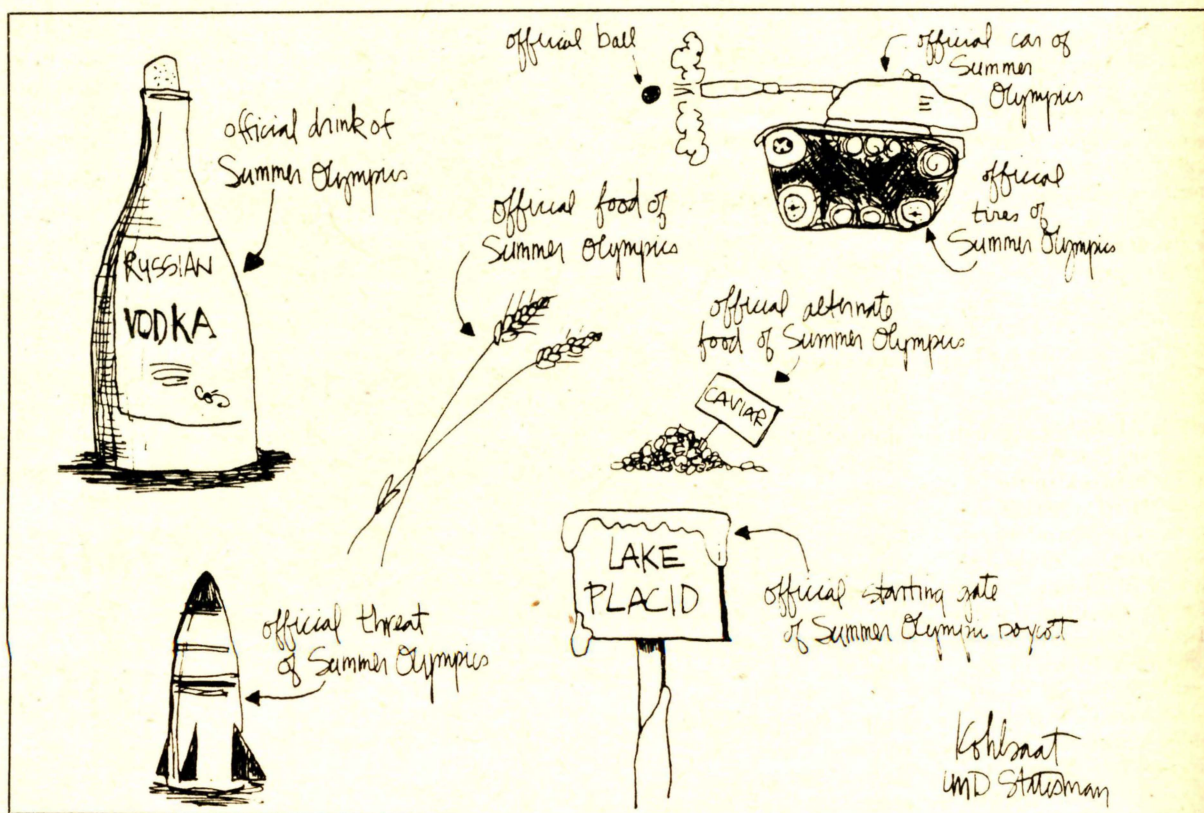 official drink of
Summer Olympics
RYSSIAN
VODKA
official ball
official car of
Summer
Olympics
official
tires of
Summer Olympics
official food of
Summer Olympics
official alternate
food of Summer Olympics
CAVIAR
official threat
of Summer Olympics
LAKE
PLACID
official starting gate
of Summer Olympic boycott
Kohlsaat
UMD Statesman